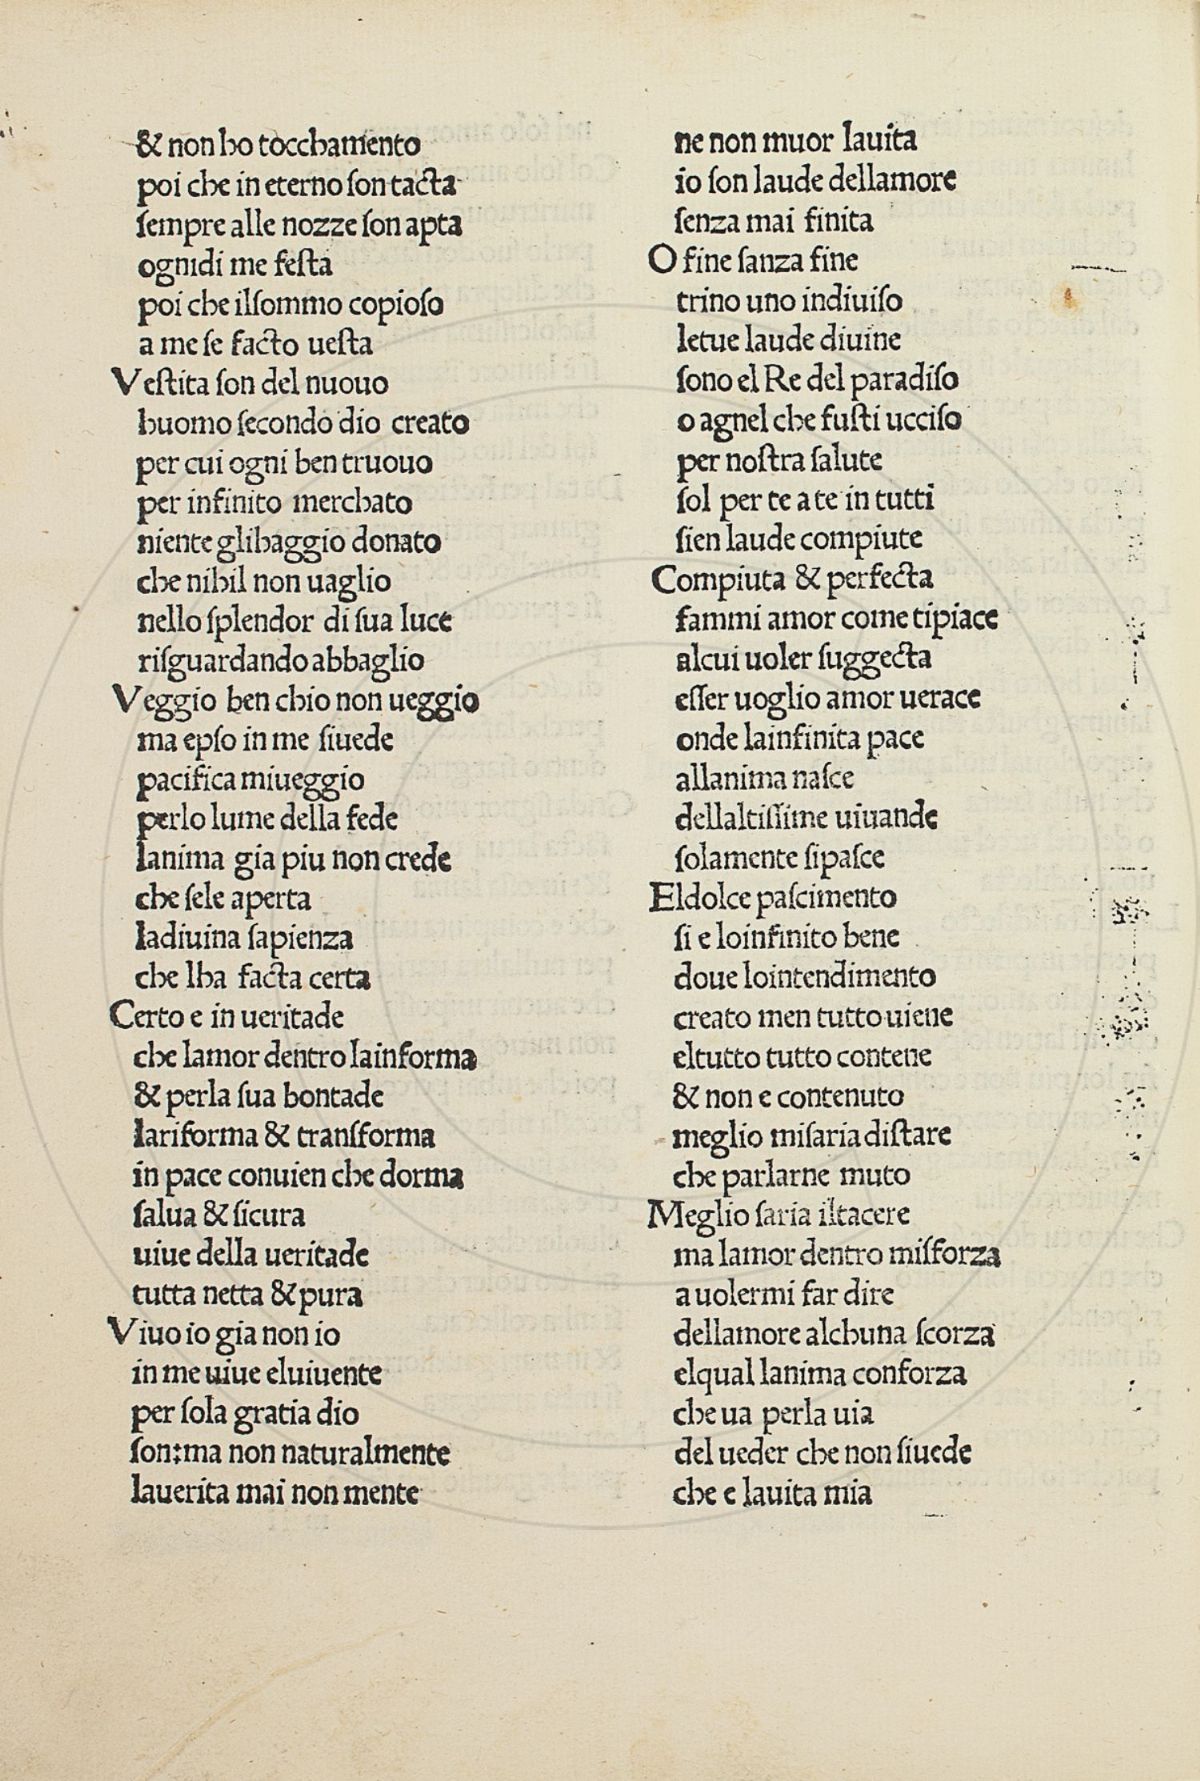 & non ho tocchamento
poi che in eterno ſon tacta
ſempre alle nozze ſon apta
ognidi me feſta
poi che ilſommo copioſo
a me ſe facto ueſta
Veſtita ſon del nuouo
huomo ſecondo dio creato
per cui ogni ben truouo
per infinito merchato
niente glihaggio donato
che nihil non uaglio
nello ſplendor di ſua luce
riſguardando abbaglio
Veggio ben chio non ueggio
ma epſo in me ſiuede
pacifica miueggio
perlo lume della fede
lanima gia piu non crede
che ſele aperta
ladiuina ſapienza
che lha facta certa
Certo e in ueritade
che lamor dentro lainforma
& perla ſua bontade
lariforma & transforma
in pace conuien che dorma
ſalua & ſicura
uiue della ueritade
tutta netta & pura
Viuo io gia non io
in me uiue eluiuente
per ſola gratia dio
ſon:ma non naturalmente
lauerita mai non mente
ne non muor lauita
io ſon laude dellamore
ſenza mai finita
O fine ſanza fine
trino uno indiuiſo
letue laude diuine
ſono el Re del paradiſo
o agnel che fuſti ucciſo
per noſtra ſalute
ſol per te a te in tutti
ſien laude compiute
Compiuta & perfecta
fammi amor come tipiace
alcui uoler ſuggecta
eſſer uoglio amor uerace
onde lainfinita pace
allanima naſce
dellaltiſſime uiuande
ſolamente ſipaſce
Eldolce paſcimento
ſi e loinfinito bene
doue lointendimento
creato men tutto uiene
eltutto tutto contene
& non e contenuto
meglio miſaria diſtare
che parlarne muto
Meglio ſaria iltacere
ma lamor dentro miſforza
a uolermi far dire
dellamore alchuna ſcorza
elqual lanima conforza
che ua perla uia
del ueder che non ſiuede
che e lauita mia